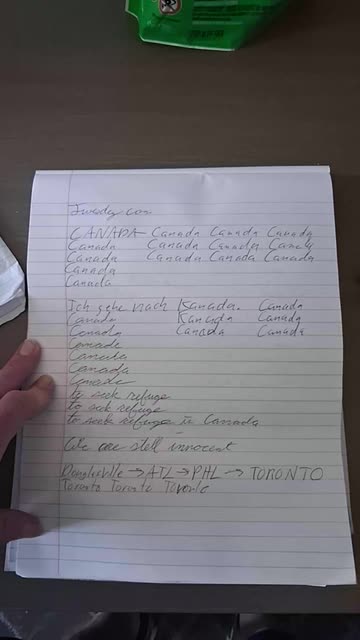 CANADA Canada Canada Canada
Canada Canada Canada Canada
Canada Canada Canada Canada
Canada
Canada
Ich gehe nach Kanada. Canada
Canada Kanada Canada
Canada Canada Canada
Canada
Canada
Canada
Canada
to seek refuge
to seek refuge
to seek refuge in Canada
We are still innocent
Douglasville → ATL → PHL → TORONTO
Toronto Toronto Toronto